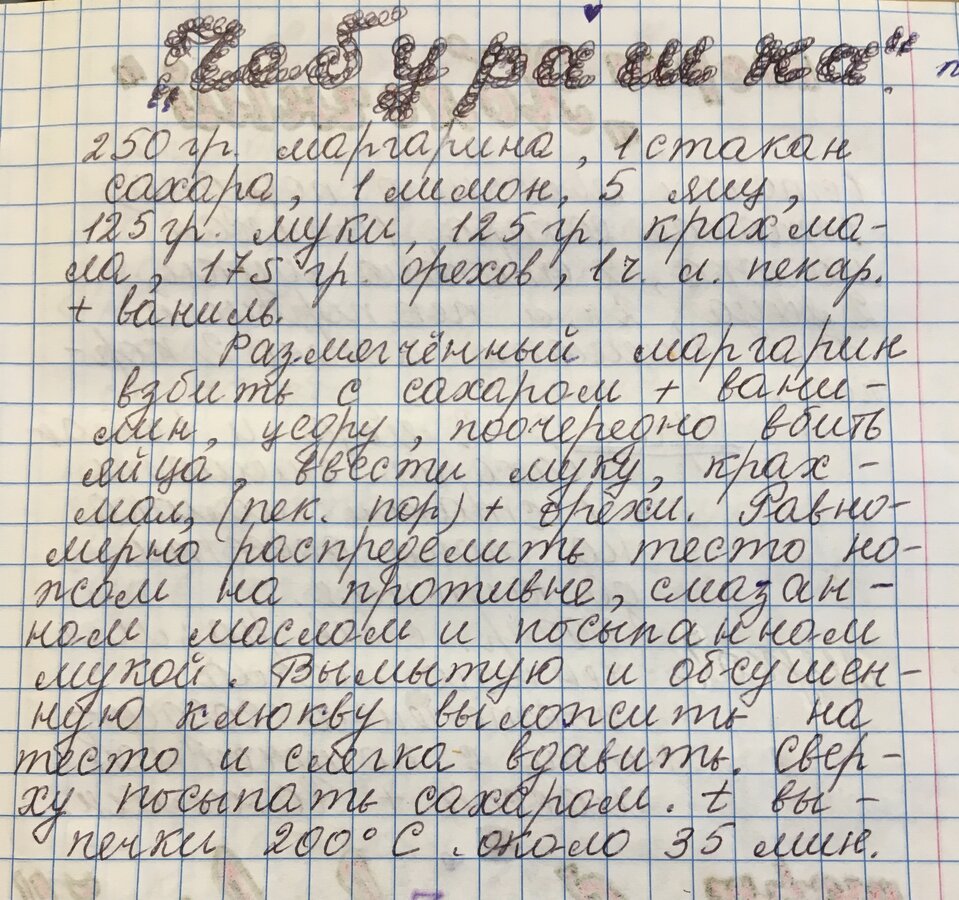 „Чебурашка".
250 гр. маргарина, 1 стакан
сахара, 1 лимон, 5 яиц,
125 гр. муки, 125 гр. крахма-
ла, 175 гр. орехов, 1 ч. л. пекар.
+ ваниль.
Размягчённый маргарин
взбить с сахаром + вани-
лин, цедру, поочередно вбить
яйца, ввести муку, крах-
мал, (пек. пор) + орехи. Равно-
мерно распределить тесто но-
жом на противне, смазан-
ном маслом и посыпанном
мукой. Вымытую и обсушен-
ную клюкву выложить на
тесто и слегка вдавить. Свер-
ху посыпать сахаром. t вы-
печки 200° С. около 35 мин.